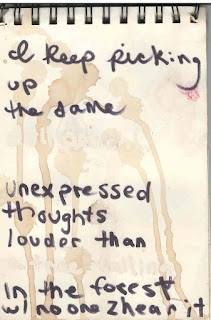 I keep picking
up
the same
unexpressed
thoughts
louder than
In the forest
w/ no one 2 hear it